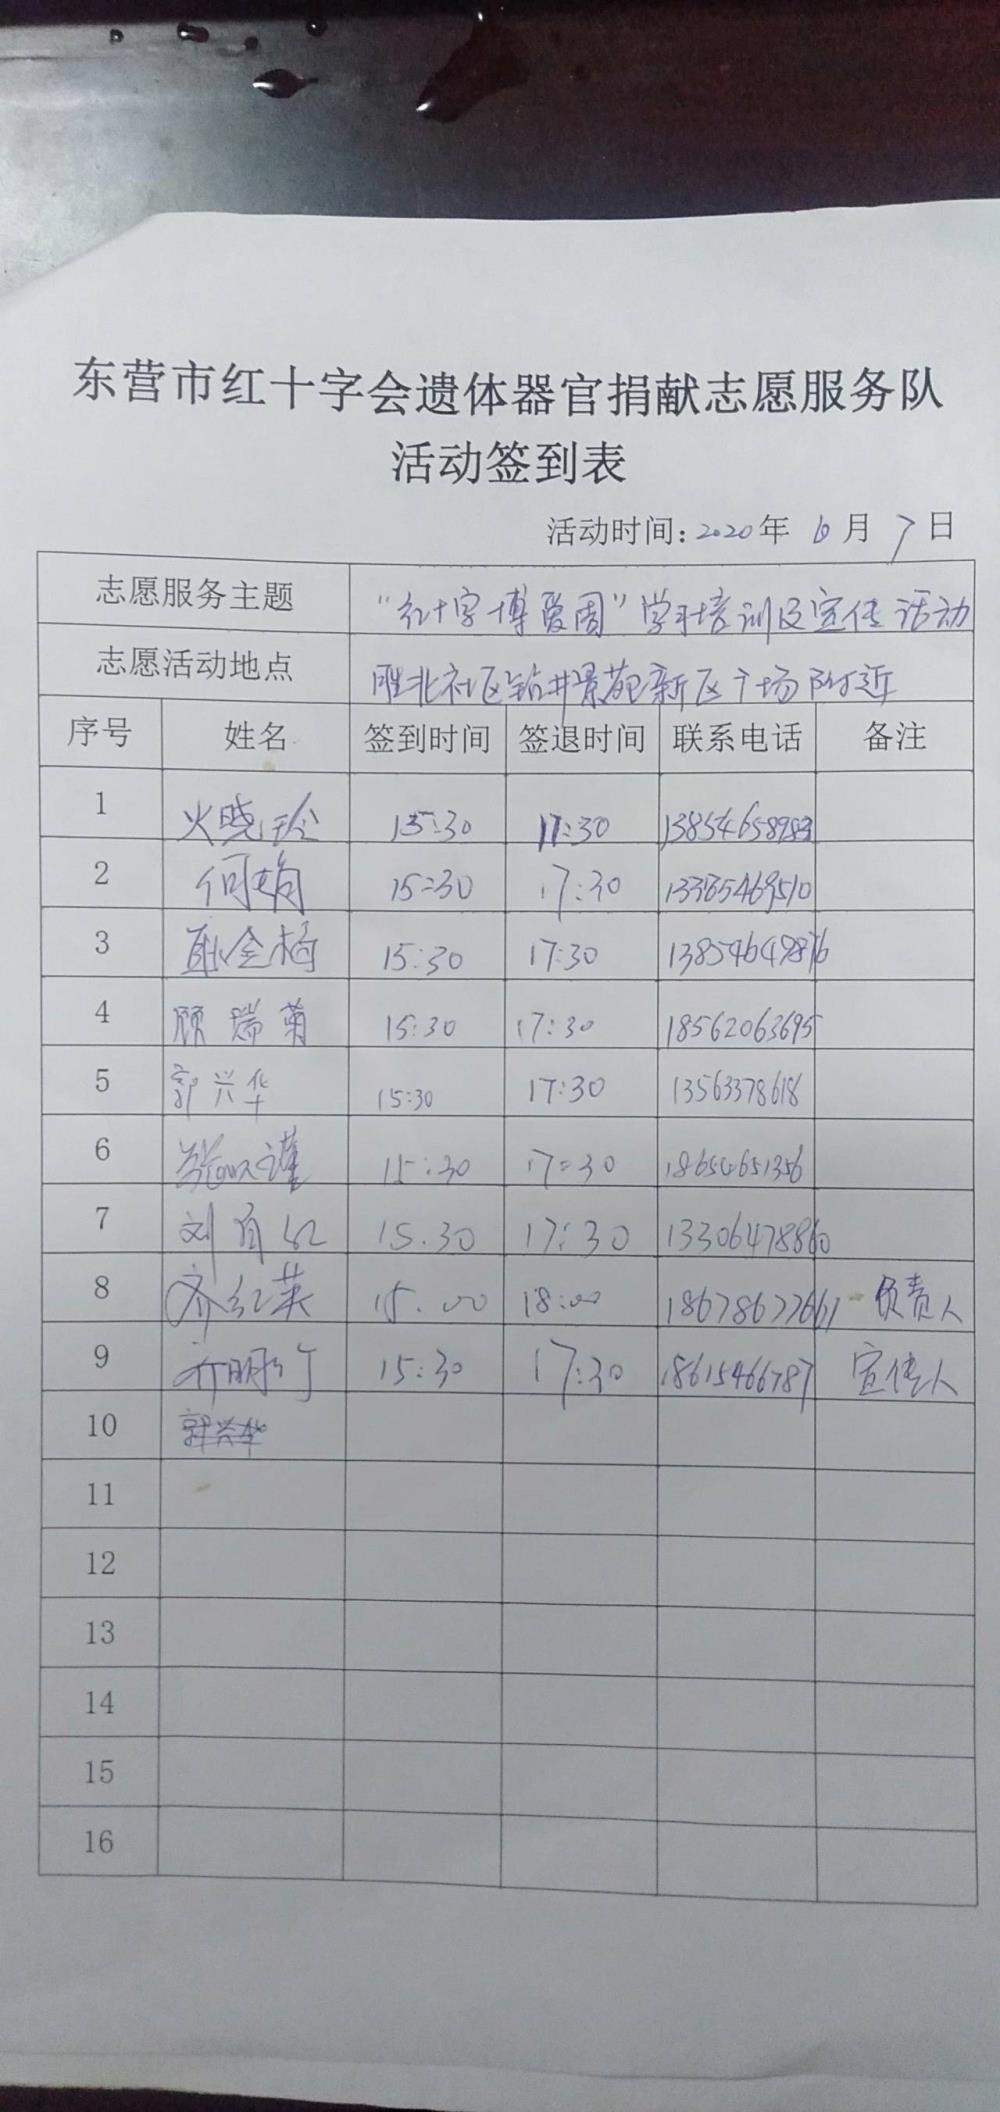 东营市红十字会遗体器官捐献志愿服务队
活动签到表
活动时间:2020年 6月 7日
志愿服务主题 “红十字博爱周”学习培训及宣传活动
志愿活动地点 胜北社区钻井景苑新区广场附近
序号 姓名 签到时间 签退时间 联系电话 备注
1 火晓玲 15:30 17:30
2 何娟 15:30 17:30
3 耿金梅 15:30 17:30 13854649876
4 顾瑞菊 15:30 17:30 18562063695
5 郭兴华 15:30 17:30 13563378618
6 15:30 17:30 18654651356
7 刘 红 15.30 17:30 13306478860
8 齐红英 15.00 18:00 18678677661 负责人
9 15:30 17:30 18615466787 宣传人
10 郭兴华
11
12
13
14
15
16